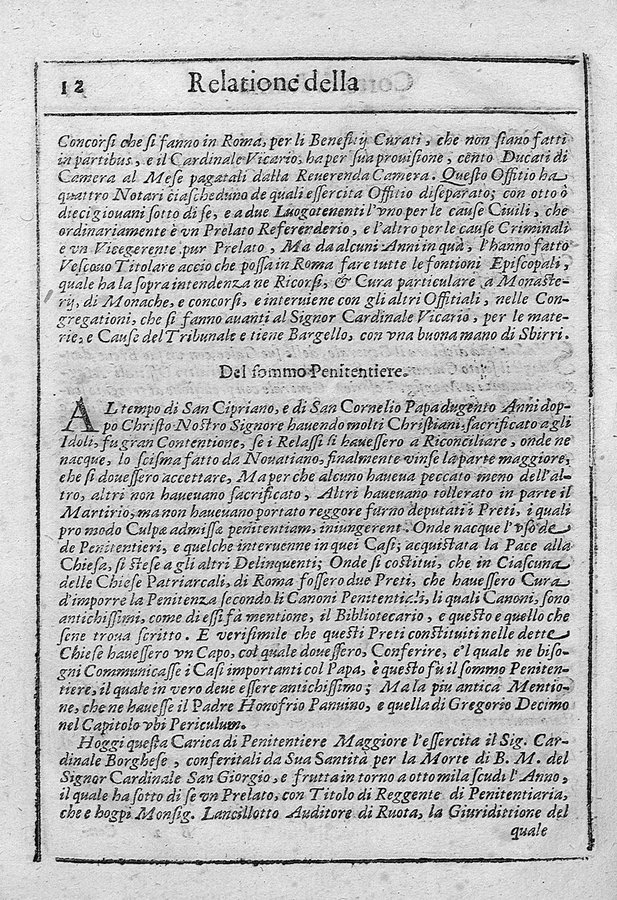 12 Relatione della
Concorsi che si fanno in Roma, per li Benefitij Curati, che non siano fatti
in partibus, e il Cardinale Vicario, ha per sua provisione, cento Ducati di
Camera al Mese pagatali dalla Reuerenda Camera. Questo Offitio ha
quattro Notari ciascheduno de quali essercita Offitio diseparato; con otto ò
dieci giouani sotto di se, e a due Luogotenenti l'vno per le cause Ciuili, che
ordinariamente è vn Prelato Referenderio, e l'altro per le cause Criminali
e vn Vicegerente pur Prelato, Ma da alcuni Anni in quà, l'hanno fatto
Vescouo Titolare accio che possa in Roma fare tutte le fontioni Episcopali,
quale ha la sopra intendenza ne Ricorsi, & Cura particulare a Monaste-
rij, di Monache, e concorsi, e interuiene con gli altri Offitiali, nelle Con-
gregationi, che si fanno auanti al Signor Cardinale Vicario, per le mate-
rie, e Cause del Tribunale e tiene Bargello, con vna buona mano di Sbirri.
Del sommo Penitentiere.
AL tempo di San Cipriano, e di San Cornelio Papa dugento Anni dop-
po Christo Nostro Signore hauendo molti Christiani, sacrificato a gli
Idoli, fu gran Contentione, se i Relassi si hauessero a Riconciliare, onde ne
nacque, lo scisma fatto da Nouatiano, finalmente vinse la parte maggiore,
che si douessero accettare, Ma per che alcuno haueua peccato meno dell'al-
tro, altri non haueuano sacrificato, Altri haueuano tollerato in parte il
Martirio, ma non haueuano portato reggore furno deputati i Preti, i quali
pro modo Culpæ admissæ penitentiam, iniungerent. Onde nacque l'vso de
de Penitentieri, e quelche interuenne in quei Casi; acquistata la Pace alla
Chiesa, si stese a gli altri Delinquenti; Onde si costitui, che in Ciascuna
delle Chiese Patriarcali, di Roma fossero due Preti, che hauessero Cura
d'imporre la Penitenza secondo li Canoni Penitentiali, li quali Canoni, sono
antichissimi, come di essi fà mentione, il Bibliotecario, e questo e quello che
sene troua scritto. E verisimile che questi Preti constituiti nelle dette
Chiese hauessero vn Capo, col quale douessero, Conferire, e'l quale ne biso-
gni Communicasse i Casi importanti col Papa, è questo fù il sommo Peniten-
tiere, il quale in vero deue essere antichissimo; Ma la piu antica Mentio-
ne, che ne hauesse il Padre Honofrio Panuino, e quella di Gregorio Decimo
nel Capitolo vbi Periculum.
Hoggi questa Carica di Penitentiere Maggiore l'essercita il Sig. Car-
dinale Borghese, conferitali da Sua Santità per la Morte di B. M. del
Signor Cardinale San Giorgio, e frutta in torno a otto mila scudi l'Anno,
il quale ha sotto di se vn Prelato, con Titolo di Reggente di Penitentiaria,
che e hogpi Monsig. Lancillotto Auditore di Ruota, la Giuridittione del
quale